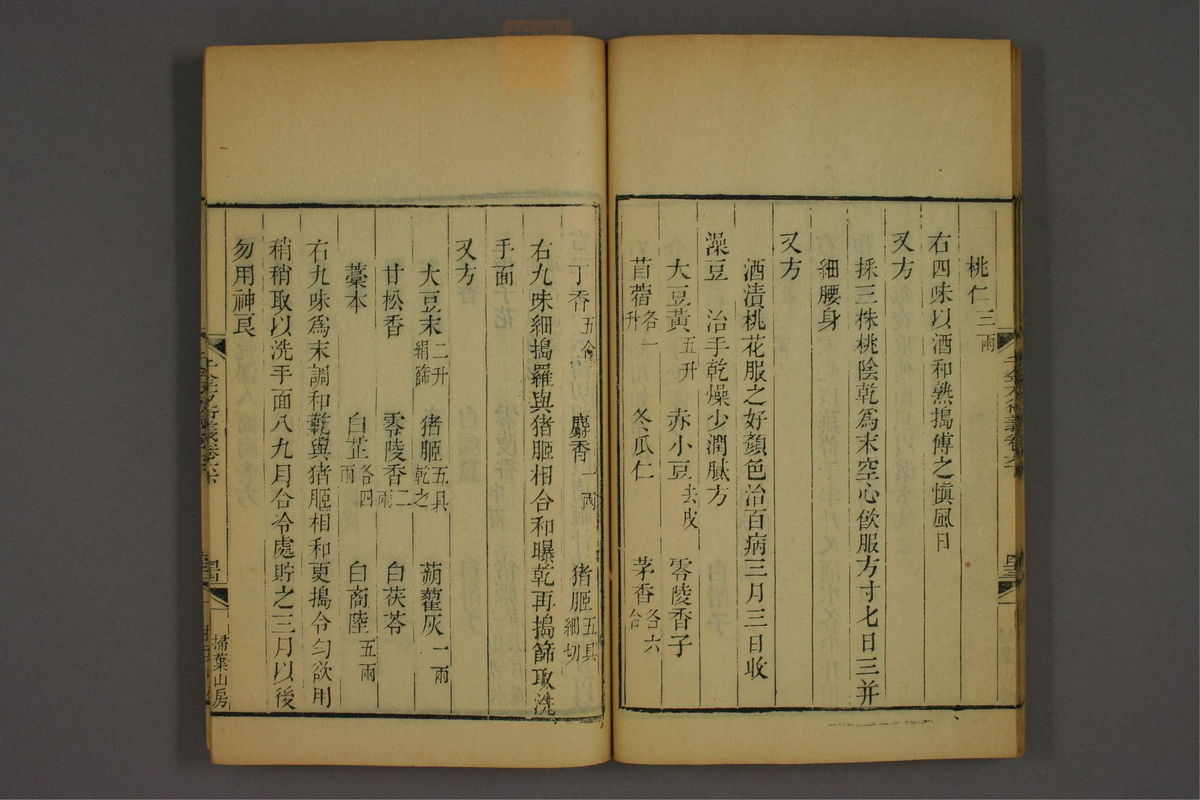 桃仁三兩
右四味以酒和熟搗傅之慎風日
又方
採三株桃陰乾爲末空心飲服方寸七日三并
細腰身
又方
酒漬桃花服之好顏色治百病三月三日收
澡豆 治手乾燥少潤膩方
大豆黃五升 赤小豆去皮 零陵香子
苜蓿各一升 冬瓜仁 茅香各六合
丁香五合 麝香一兩 猪胵五具細切
右九味細搗羅與猪胵相合和曝乾再搗篩取洗
手面
又方
大豆末二升絹篩 猪胵五具乾之 蒴藋灰一兩
甘松香 零陵香二兩 白茯苓
藁本 白芷各四兩 白商陸五兩
右九味爲末調和乾與猪胵相和更搗令勻欲用
稍稍取以洗手面八九月合令處貯之三月以後
勿用神良
掃葉山房